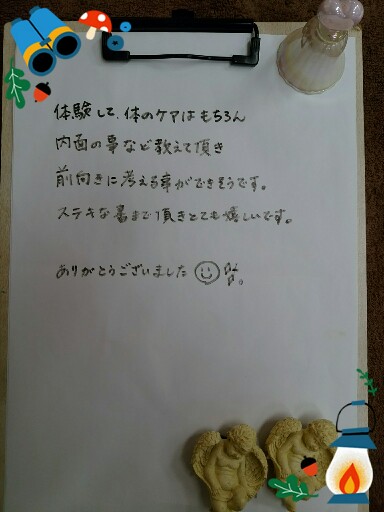 体験して、体のケアはもちろん
内面の事など教えて頂き
前向きに考える事ができそうです。
ステキな書まで頂きとても嬉しいです。
ありがとうございました